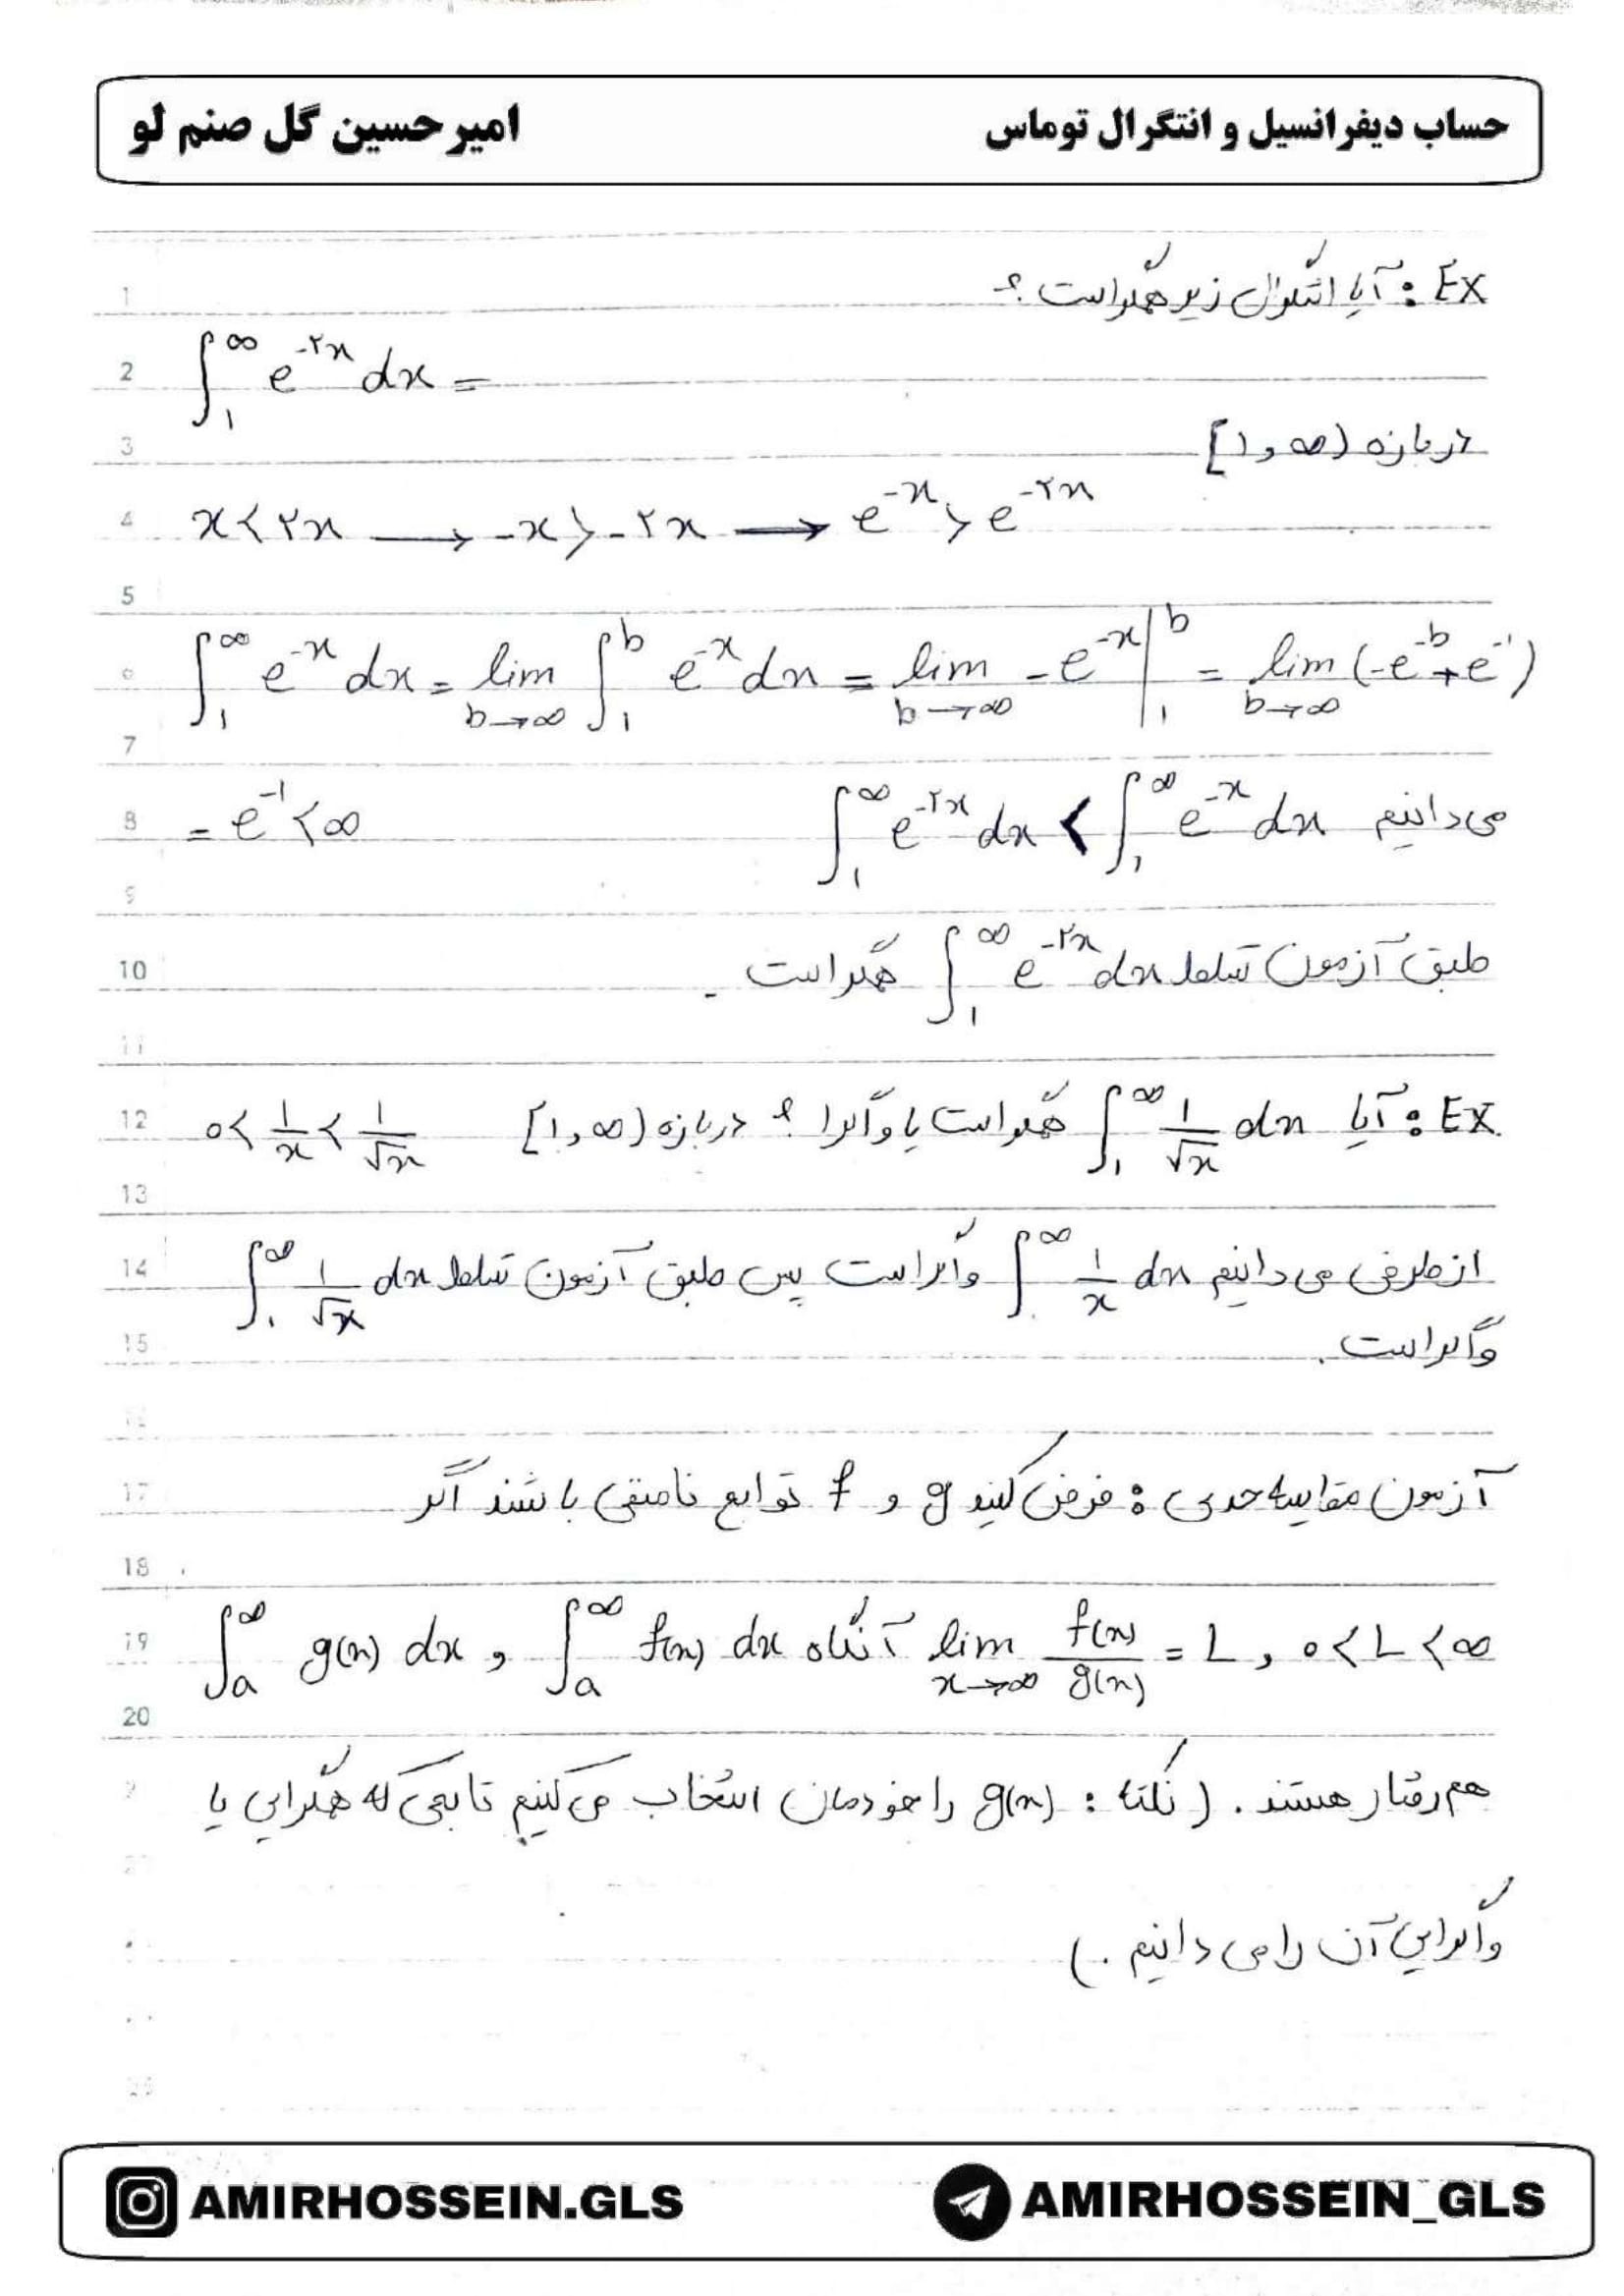 حساب دیفرانسیل و انتگرال توماس
امیرحسین گل صنم لو
EX : آیا انتگرال زیر همگراست ؟
∫₁^∞ e^{-۲x} dx =
در بازه [۱,∞)
x < ۲x → -x > -۲x → e^{-x} > e^{-۲x}
∫₁^∞ e^{-x} dx = lim_{b→∞} ∫₁^b e^{-x} dx = lim_{b→∞} -e^{-x} |₁^b = lim_{b→∞} (-e^{-b} + e^{-1})
= e^{-1} < ∞ می دانیم ∫₁^∞ e^{-۲x} dx < ∫₁^∞ e^{-x} dx
طبق آزمون تسلط ∫₁^∞ e^{-۲x} dx همگراست .
EX : آیا ∫₁^∞ 1/√x dx همگراست یا واگرا ؟ در بازه [۱,∞) ۰ < 1/x < 1/√x
از طرفی می دانیم ∫₁^∞ 1/x dx واگراست پس طبق آزمون تسلط ∫₁^∞ 1/√x dx
واگراست .
آزمون مقایسه حدی : فرض کنید g و f توابع نامنفی باشند اگر
lim_{x→∞} f(x)/g(x) = L , ۰ < L < ∞ آنگاه ∫ₐ^∞ f(x) dx و ∫ₐ^∞ g(x) dx
هم رفتار هستند . ( نکته : g(x) را خودمان انتخاب می کنیم تابعی که همگرایی یا
واگرایی آن را می دانیم . )
1
2
3
4
5
6
7
8
9
10
11
12
13
14
15
16
17
18
19
20
AMIRHOSSEIN.GLS
AMIRHOSSEIN_GLS